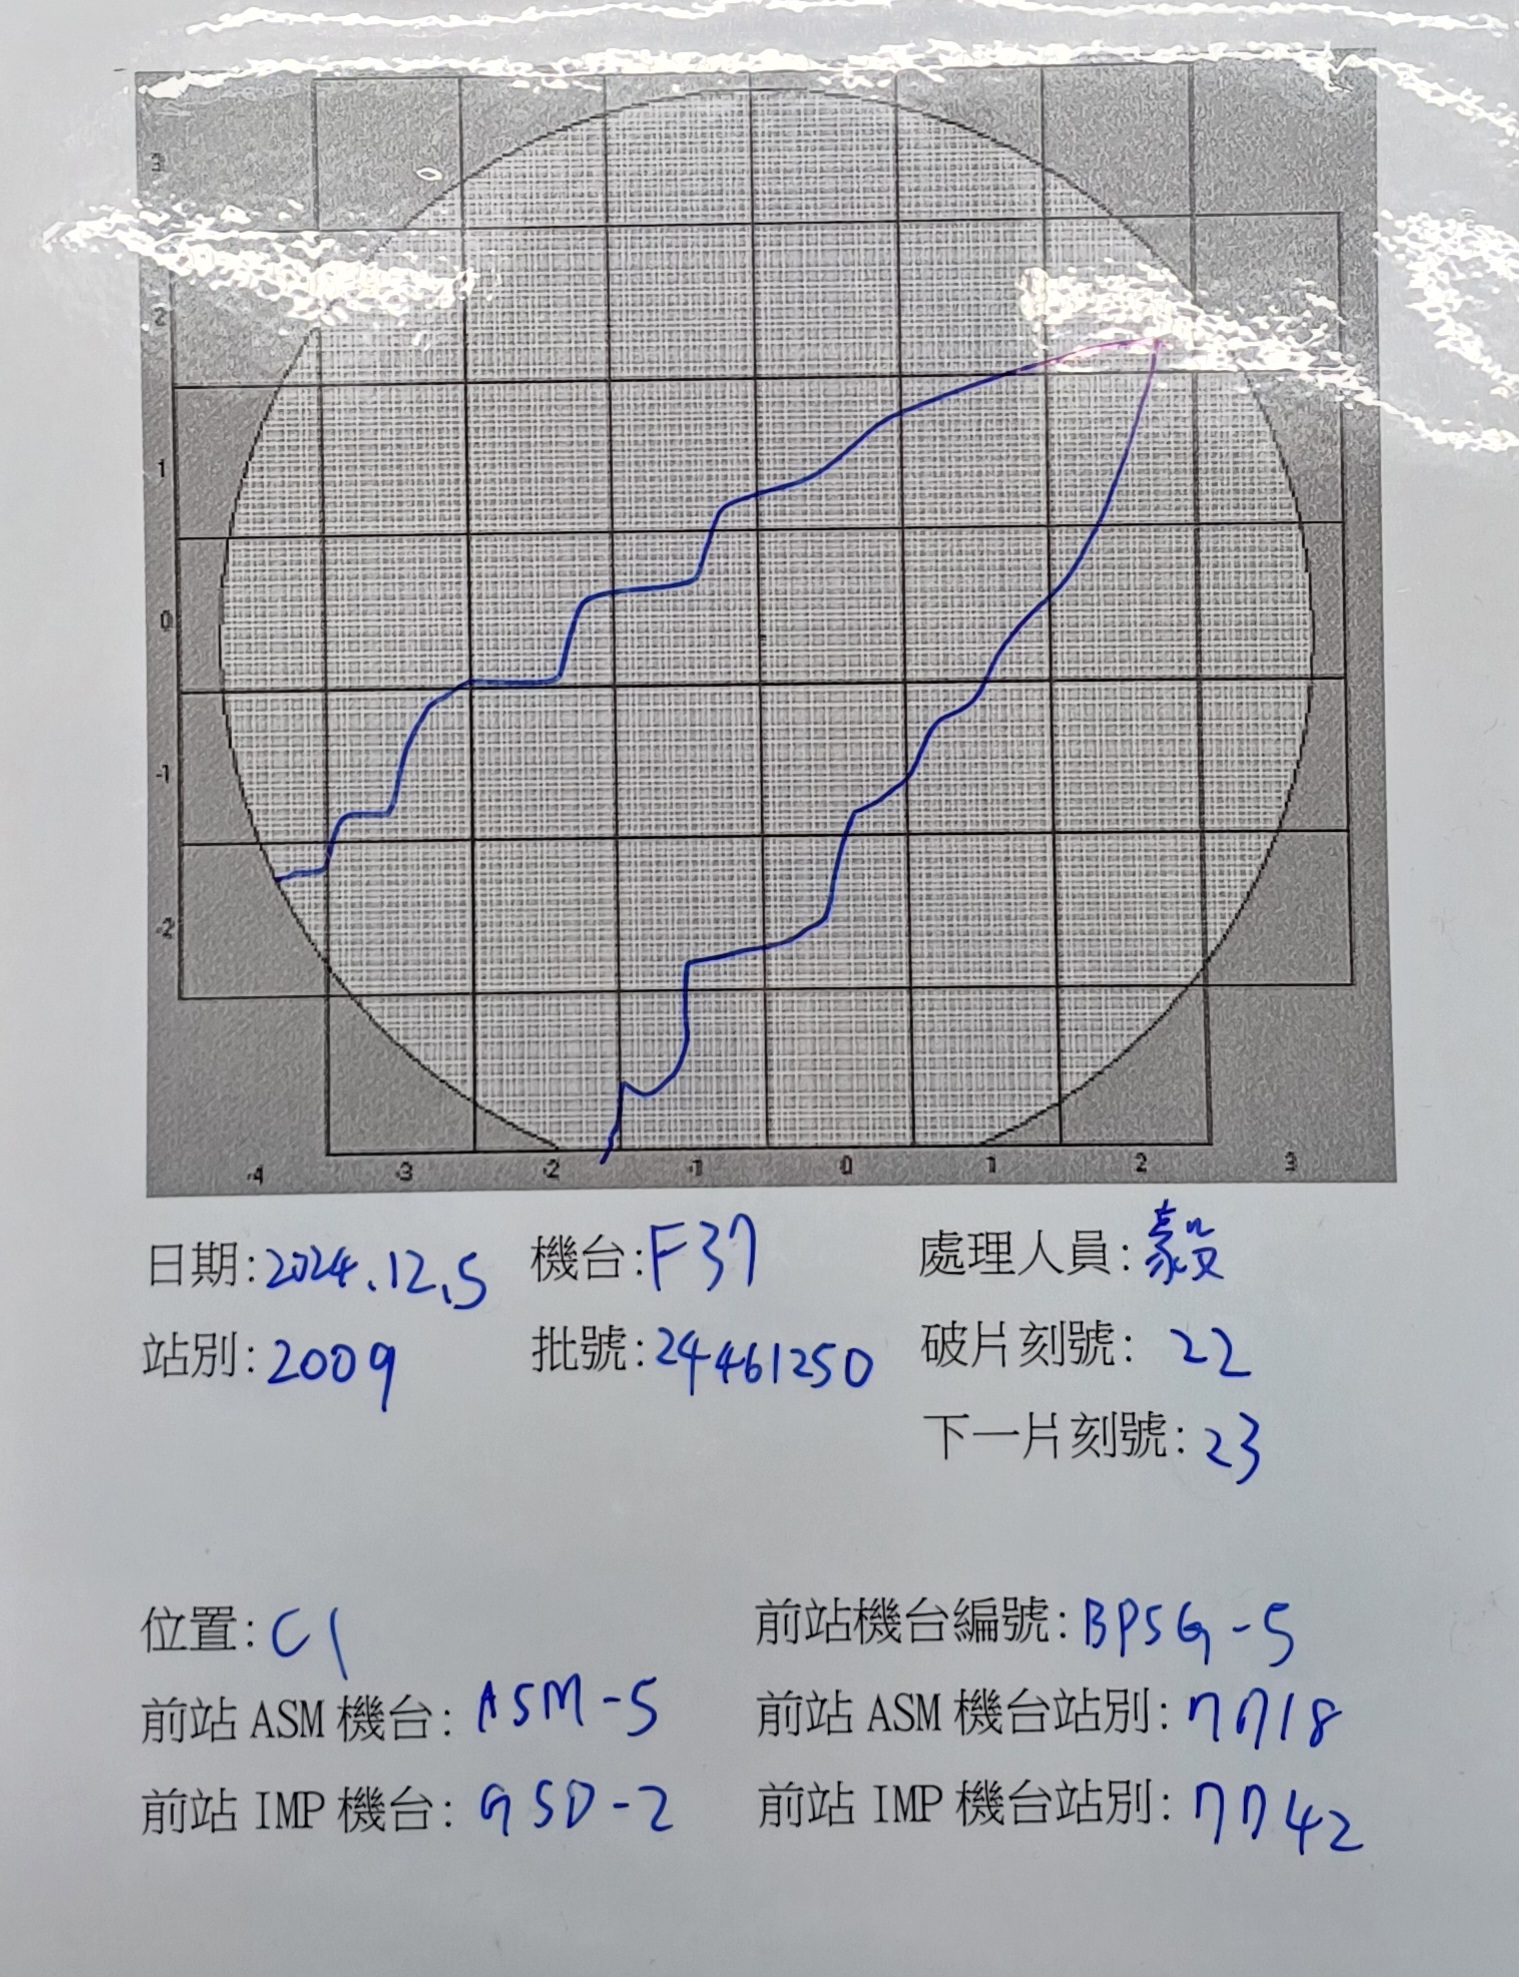 3
2
1
0
-1
-2
-4 -3 -2 -1 0 1 2 3
日期:2024.12.5 機台:F37 處理人員:毅
站別:2009 批號:24461250 破片刻號: 22
下一片刻號:23
位置:C1 前站機台編號:BPSG-5
前站 ASM 機台: ASM-5 前站 ASM 機台站別:7718
前站 IMP 機台: GSD-2 前站 IMP 機台站別:7742